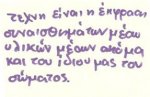 τεχνη είναι η έκφραση
συναισθημάτων μέσω
υλικών μέσων ακόμα
και του ίδιου μας του
σώματος.